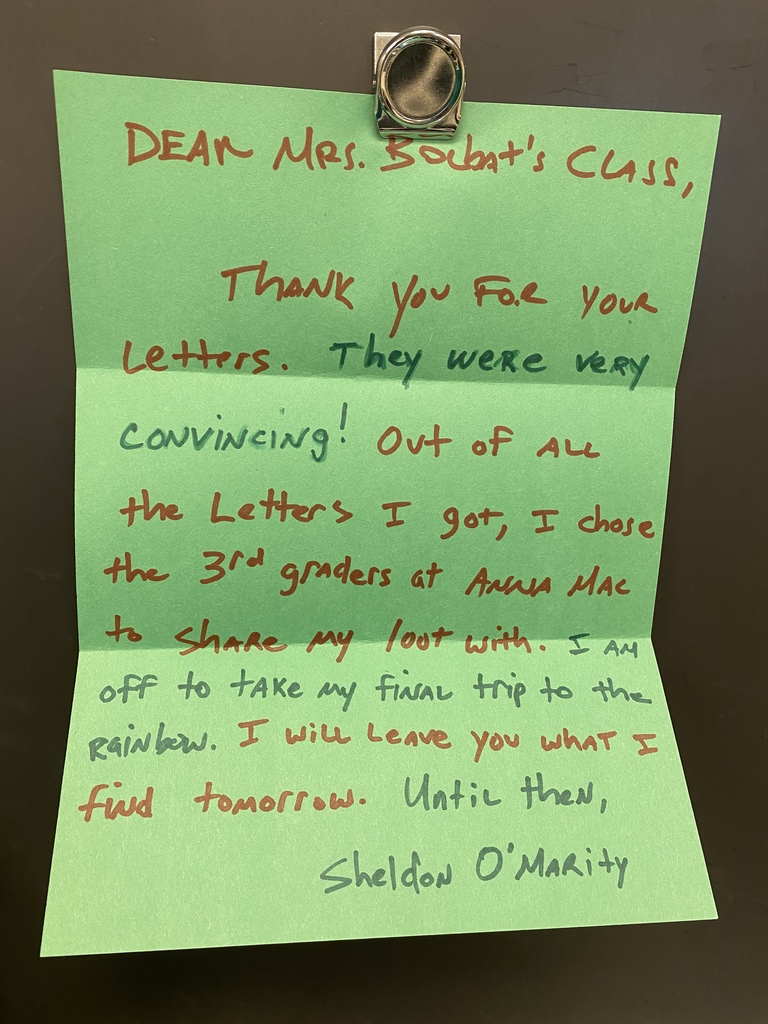 DEAR MRS. Bolbat's CLASS,
THANK YOU FOR YOUR
Letters. They were very
CONVINCING! Out of ALL
the Letters I got, I chose
the 3rd graders at ANNA MAC
to SHARE MY loot with. I AM
off to tAKE MY fiNAL trip to the
RAiNbow. I will LEAVE you wHAT I
find tomorrow. Until then,
Sheldon O'MARity